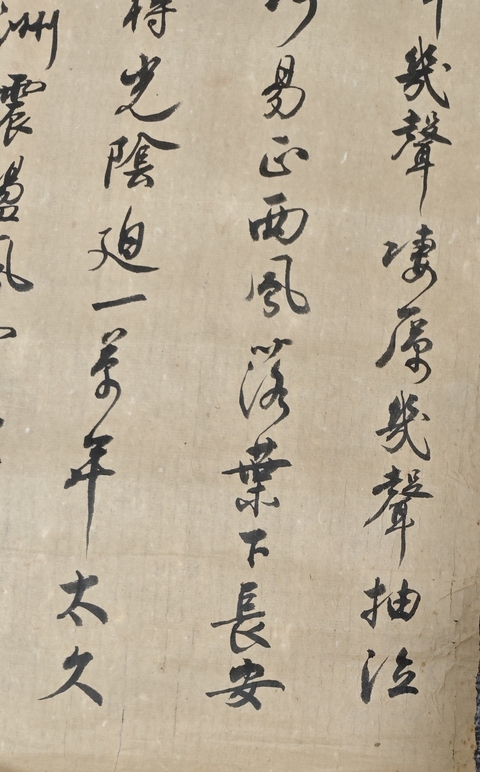 幾聲凄厲幾聲抽泣
易正西風落葉下長安
光陰迫一萬年太久
洲震盪風